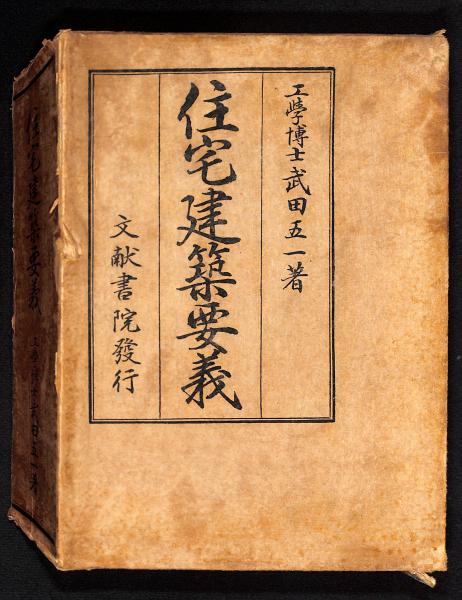 工學博士武田五一著
住宅建築要義
文献書院發行
要義
工學博士武田五一著